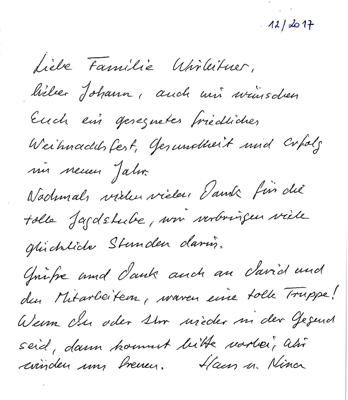 12/2017
Liebe Familie Wirleitner,
lieber Johann, auch wir wünschen
Euch ein gesegnetes friedliches
Weihnachtsfest, Gesundheit und Erfolg
im neuen Jahr.
Nochmals vielen vielen Dank für die
tolle Jagdstube, wir verbringen viele
glückliche Stunden darin.
Grüße und Dank auch an David und
den Mitarbeitern, waren eine tolle Truppe!
Wenn Du oder Ihr wieder in der Gegend
seid, dann kommt bitte vorbei, wir
würden uns freuen. Hans u. Nina